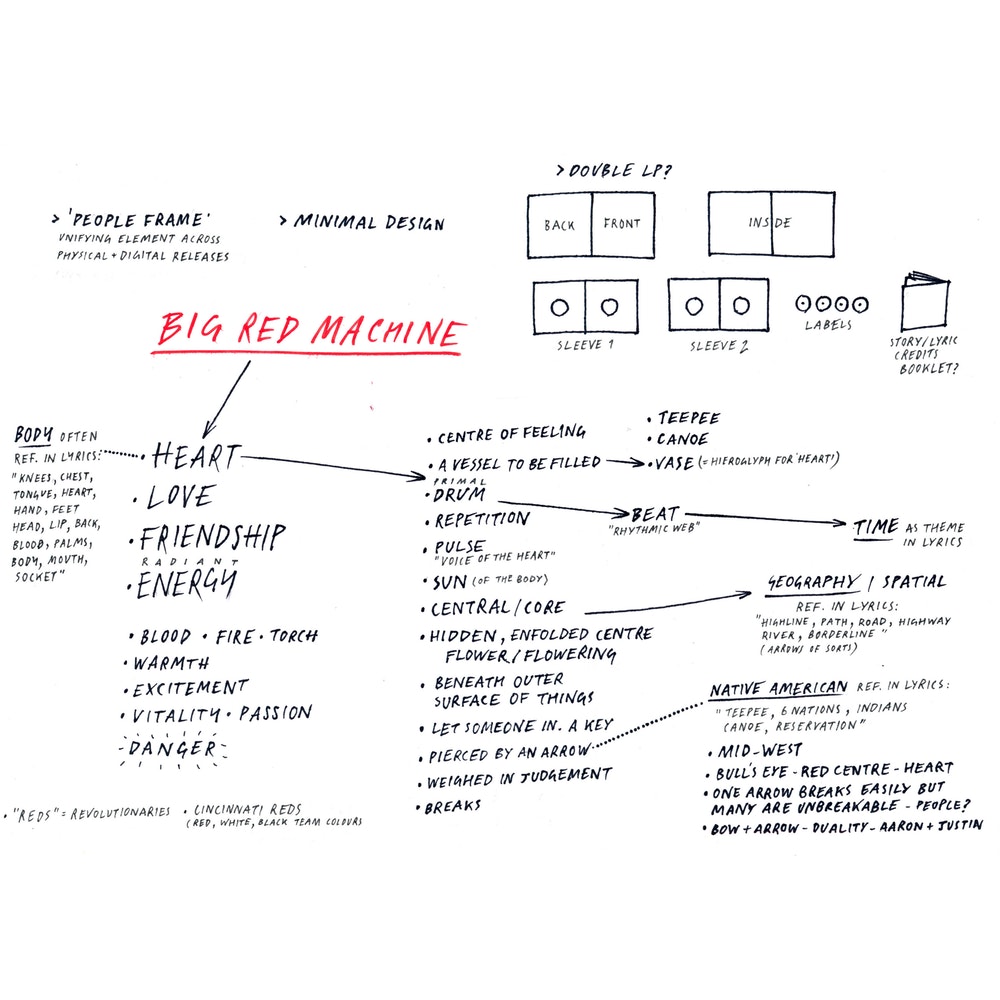 > DOUBLE LP?
BACK FRONT
INSIDE
> 'PEOPLE FRAME'
UNIFYING ELEMENT ACROSS
PHYSICAL + DIGITAL RELEASES
> MINIMAL DESIGN
SLEEVE 1
SLEEVE 2
LABELS
STORY/LYRIC
CREDITS
BOOKLET?
BIG RED MACHINE
BODY OFTEN
REF. IN LYRICS:
"KNEES, CHEST,
TONGUE, HEART,
HAND, FEET
HEAD, LIP, BACK,
BLOOD, PALMS,
BODY, MOUTH,
SOCKET"
• HEART
• LOVE
• FRIENDSHIP
RADIANT
• ENERGY
• BLOOD • FIRE • TORCH
• WARMTH
• EXCITEMENT
• VITALITY • PASSION
DANGER
• "REDS" = REVOLUTIONARIES
• CINCINNATI REDS
(RED, WHITE, BLACK TEAM COLOURS
• CENTRE OF FEELING
• A VESSEL TO BE FILLED
PRIMAL
• DRUM
• REPETITION
• PULSE
"VOICE OF THE HEART"
• SUN (OF THE BODY)
• CENTRAL/CORE
• HIDDEN, ENFOLDED CENTRE
FLOWER/FLOWERING
• BENEATH OUTER
SURFACE OF THINGS
• LET SOMEONE IN. A KEY
• PIERCED BY AN ARROW
• WEIGHED IN JUDGEMENT
• BREAKS
• TEEPEE
• CANOE
• VASE (= HIEROGLYPH FOR 'HEART')
BEAT
"RHYTHMIC WEB"
TIME AS THEME
IN LYRICS
GEOGRAPHY / SPATIAL
REF. IN LYRICS:
"HIGHLINE, PATH, ROAD, HIGHWAY
RIVER, BORDERLINE"
(ARROWS OF SORTS)
NATIVE AMERICAN REF. IN LYRICS:
"TEEPEE, 6 NATIONS, INDIANS
CANOE, RESERVATION"
• MID-WEST
• BULL'S EYE - RED CENTRE - HEART
• ONE ARROW BREAKS EASILY BUT
MANY ARE UNBREAKABLE - PEOPLE?
• BOW + ARROW - DUALITY - AARON + JUSTIN